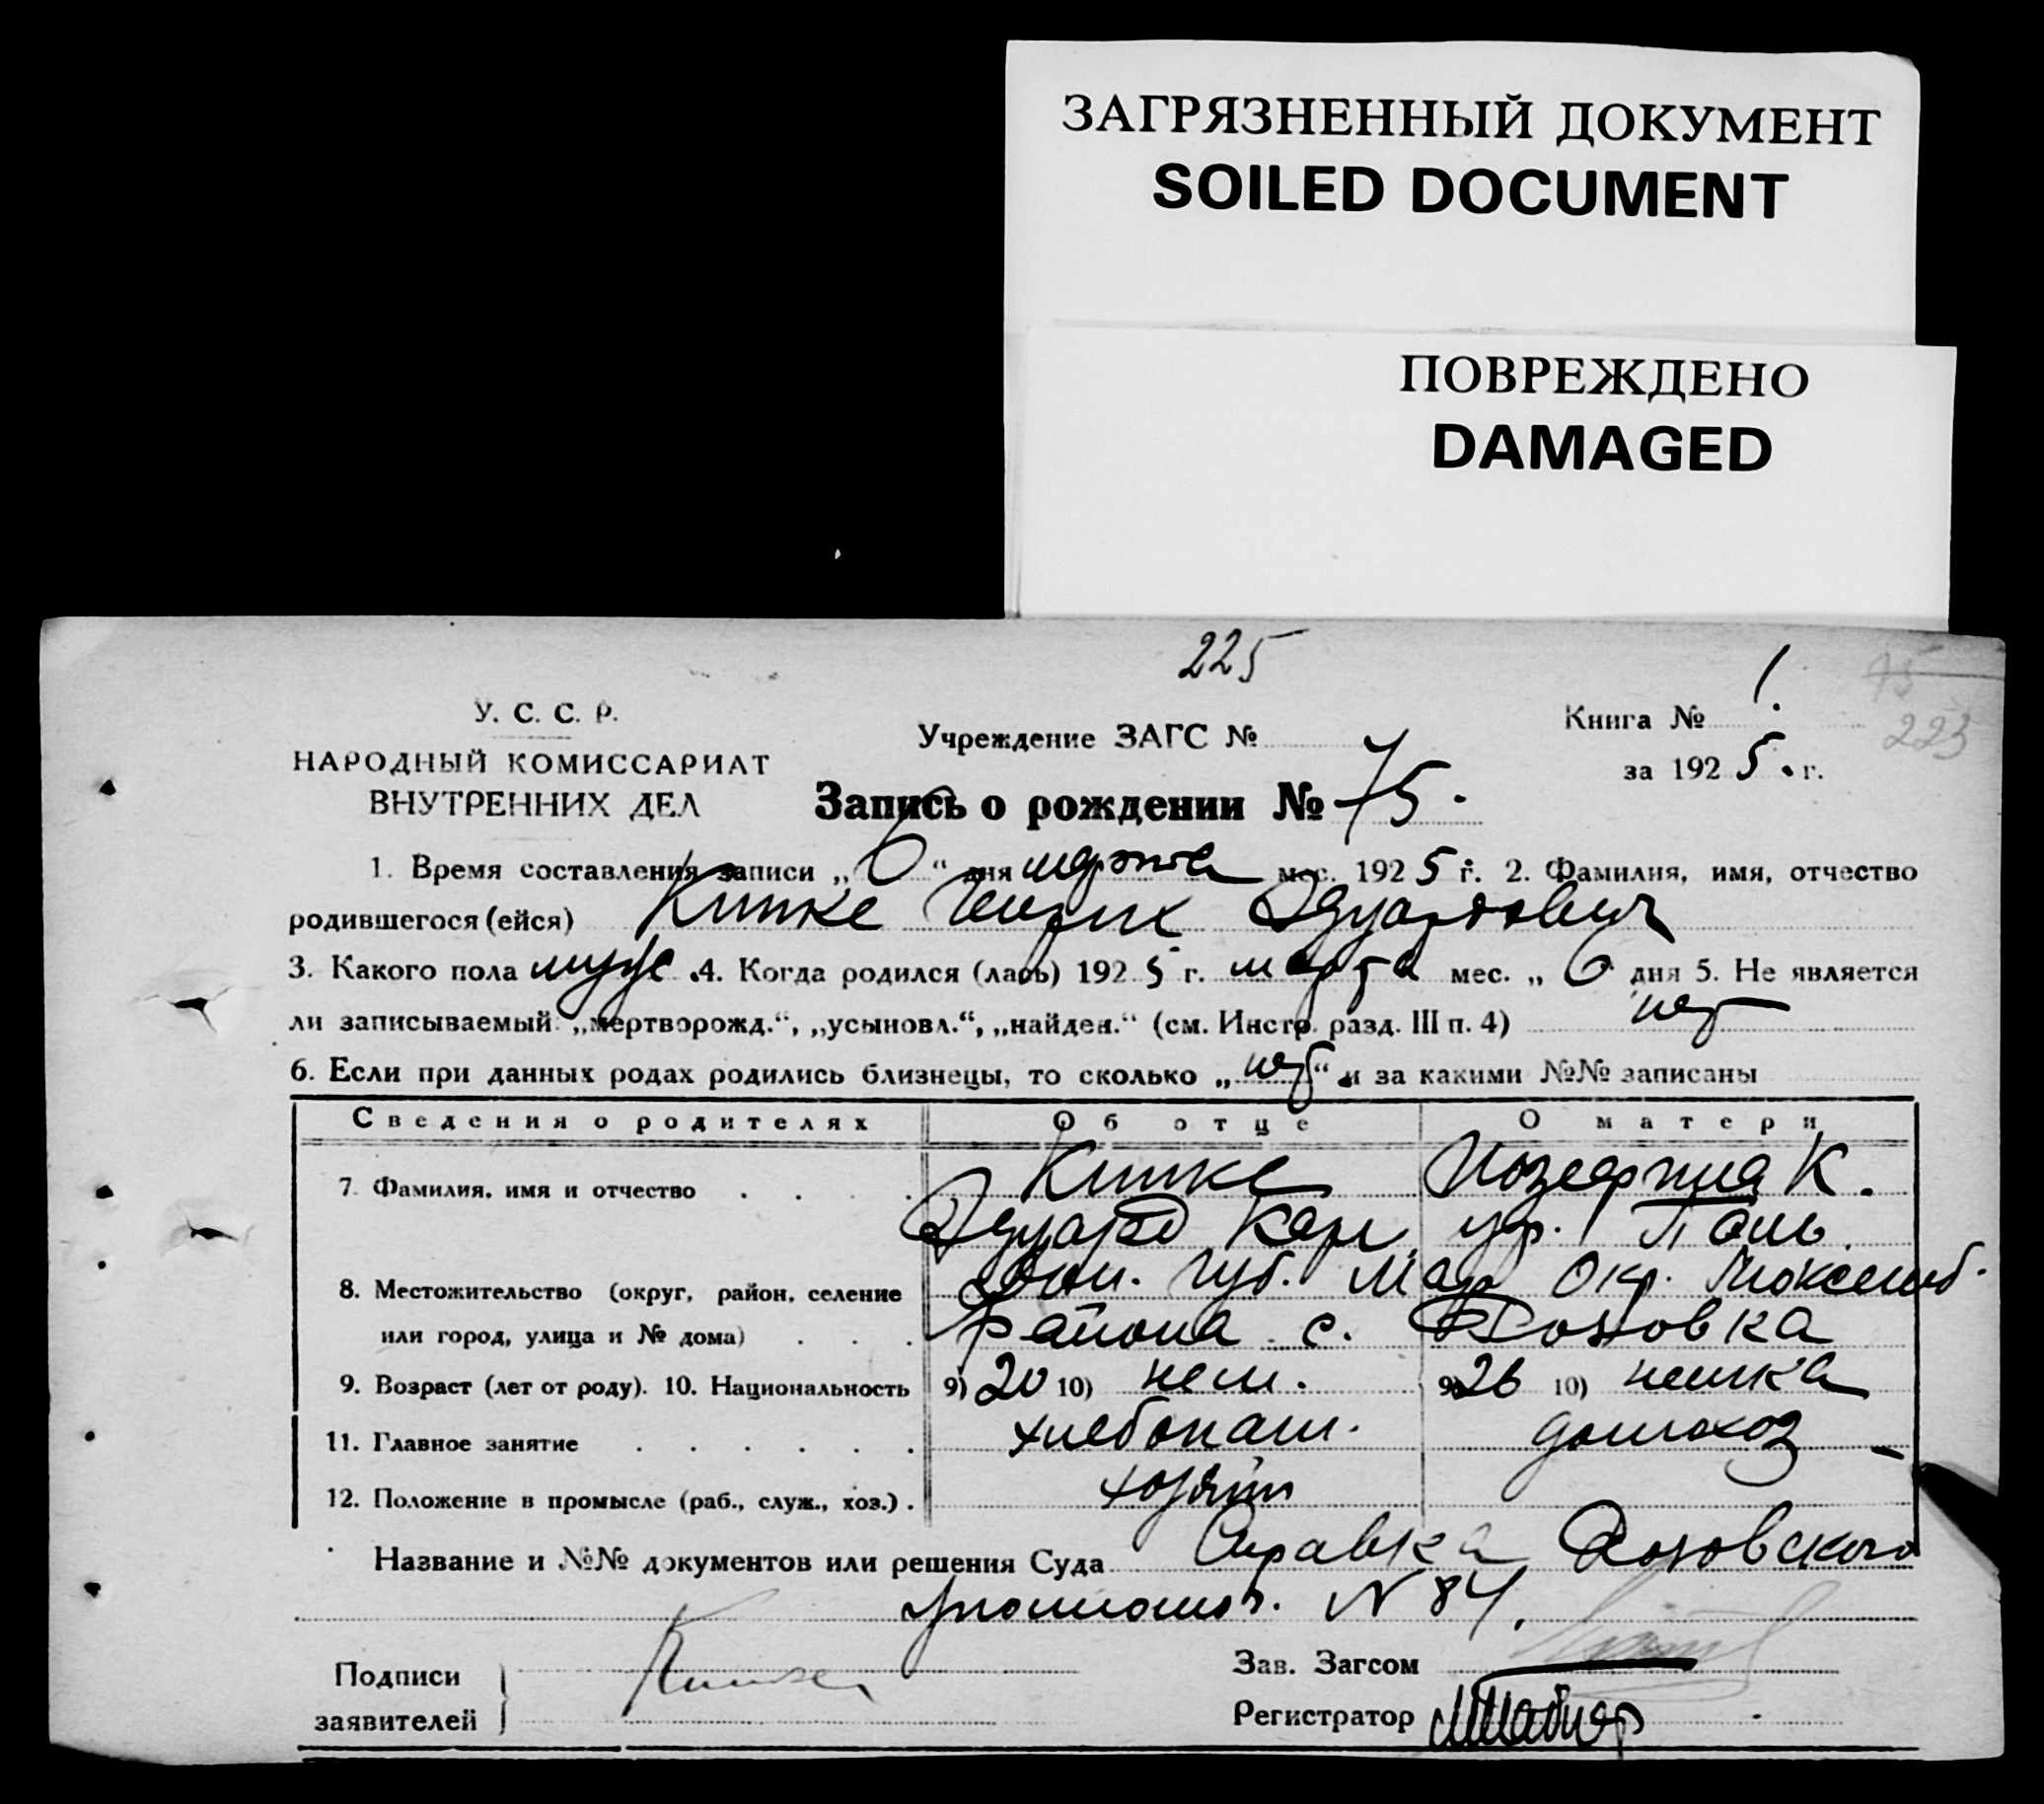 ЗАГРЯЗНЕННЫЙ ДОКУМЕНТ
SOILED DOCUMENT
ПОВРЕЖДЕНО
DAMAGED
225
У. С. С. Р.
НАРОДНЫЙ КОМИССАРИАТ
ВНУТРЕННИХ ДЕЛ
Учреждение ЗАГС №
Книга № 1.
75
223
за 1925. г.
Запись о рождении № 75.
1. Время составления записи „6“ дня марта мес. 1925 г. 2. Фамилия, имя, отчество
родившегося (ейся) Кипке Генрих Эдуардович
3. Какого пола муж. 4. Когда родился (лась) 1925 г. марта мес. „6 дня 5. Не является
ли записываемый: „мертворожд.“, „усыновл.“, „найден.“ (см. Инстр. разд. III п. 4) нет
6. Если при данных родах родились близнецы, то сколько „нет“ и за какими №№ записаны
Сведения о родителях Об отце О матери
7. Фамилия, имя и отчество Кипке Иозефина К.
Эдуард Карл. ур.
8. Местожительство (округ, район, селение Дон. Губ. Мар Окр.
или город, улица и № дома) района с.
9. Возраст (лет от роду). 10. Национальность 9) 20 10) нем. 9) 26 10) немка
11. Главное занятие хлебопаш. домохоз
12. Положение в промысле (раб., служ., хоз.). хозяин
Название и №№ документов или решения Суда Справка
№ 84.
Подписи
заявителей
Кипке
Зав. Загсом
Регистратор